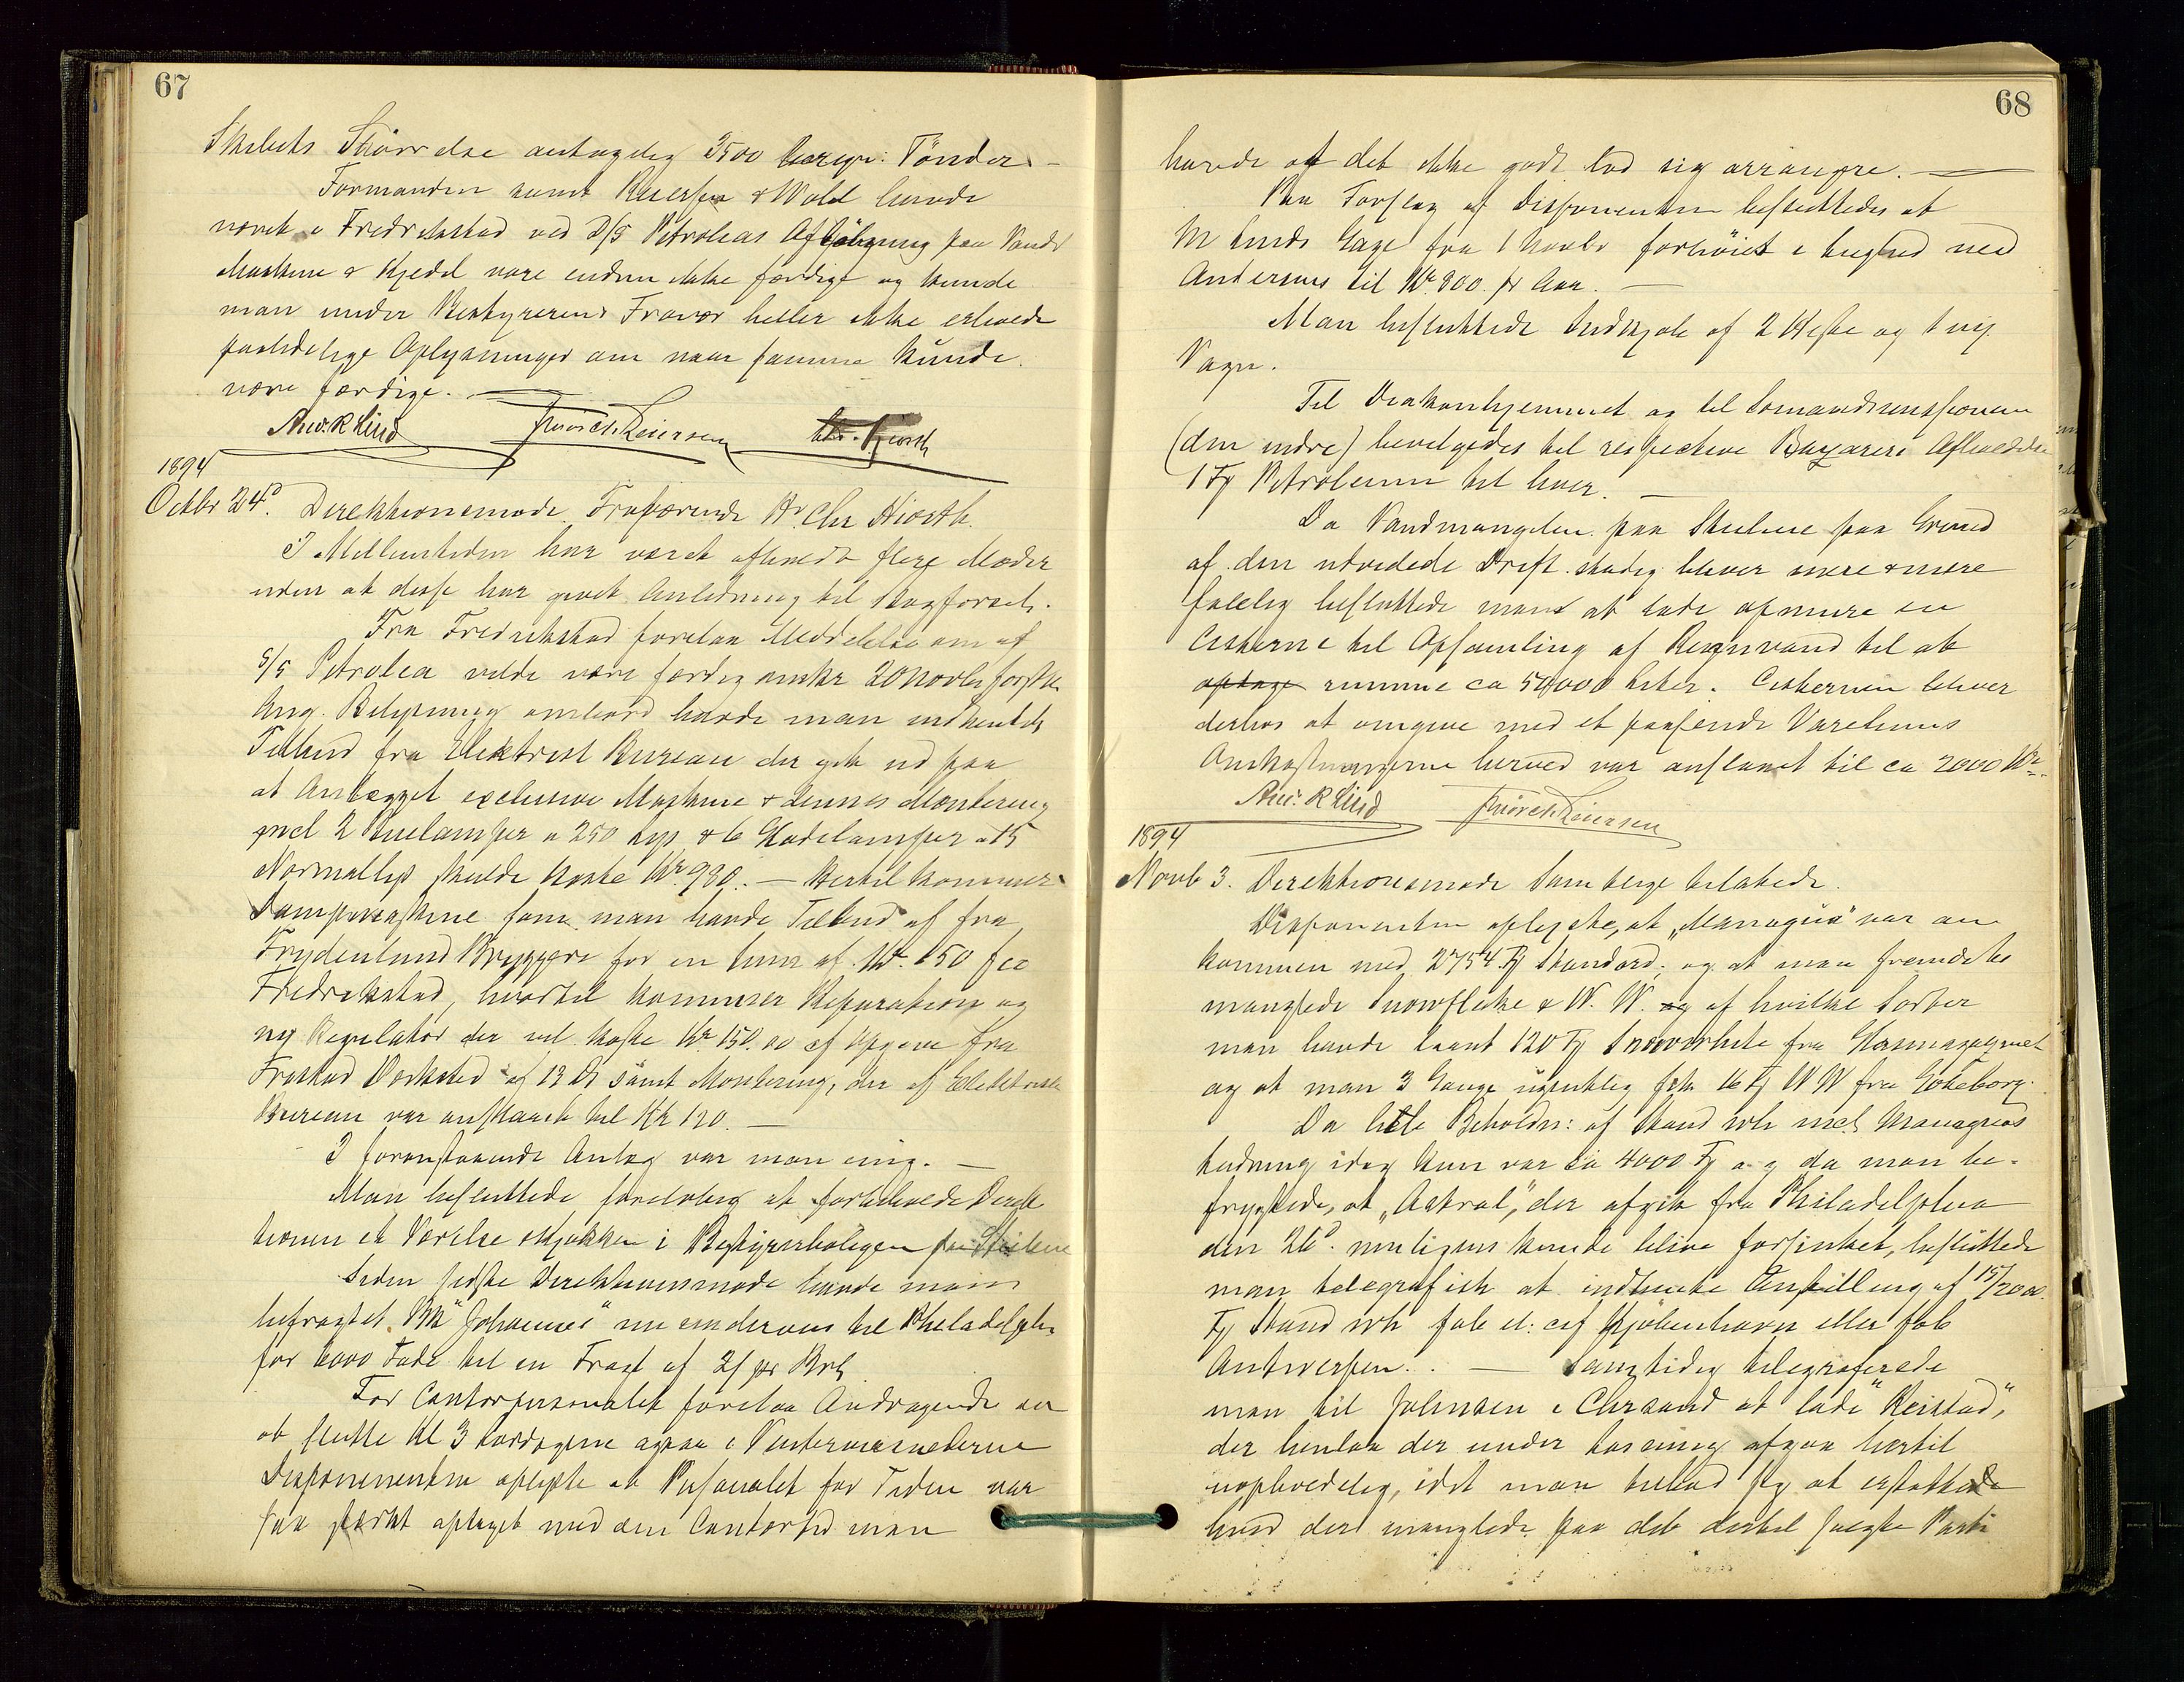 67
Skibets Størrelse antagelig 3500 bargs: Tønder –
Formanden samt Reiersen & Wold havde
været i Fredrikstad ved D/S Petroleas Afløbning paa Vandet
Maskine & Kjedel vare endnu ikke færdige og kunde
man under Bestyrerens Fravær heller ikke erholde
paalidelige Oplysninger om naar samme kunde
være færdige. –
And. R Lind Chr. Hiorth
1894
Octbr 24d. Direktionsmøde Fraværende Hr Chr Hiorth.
I Mellemtiden har været afholdt flere Møder
uden at disse har givet Anledning til Bogførsel.
Fra Fredrikstad forelaa Meddelelse om at
S/S Petrolea vilde være færdig omkr 20 Novbr førstk.
Ang. Belysning ombord havde man indhentet
Tilbud fra Elektrisk Bureau der gik ud paa
at Anlægget exclusive Maskine & dennes Montering
incl 2 Buelamper a 250 lys & 6 Glødelamper a 15
Normallys skulde koste Kr 980. – Hertil kommer
Dampmaskine som man havde Tilbud af fra
Frydenlund Bryggeri for en Sum af Kr. 150 fco
Fredrikstad, hvortil kommer Reparation og
ny Regulator der vil koste Kr 150.00 af Opgave fra
Frstad Værksted af 13 ds samt Montering, der af Elektrisk
Bureau var anslaaet til Kr 120. –
I foranstaaende Anlæg var man enig. –
Man besluttede foreløbig at forbeholde Direk
tionen et Værelse & Kjøkken i Bestyrerboligen paa Skilene
Siden sidste Direktionsmøde havde man
befragtet Bk "Johannes" nu underveis til Philadelphia
for 6000 Fade til en Fragt af 2/ pr Brl
For Contorpersonalet forelaa Andragende om
at slutte Kl 3 Lørdagene ogsaa i Vintermaanederne
Disponenten oplyste at Personalet for Tiden var
saa stærkt optaget med den Contortid man
68
havde at det ikke godt lod sig arrangere. –
Paa Forslag af Disponenten besluttedes at
M Lunds Gage fra 1 Novbr forhøiet i Lighed med
Andersens til Kr. 800 pr Aar. –
Man besluttede Indkjøb af 2 Heste og 1 ny
Vogn.
Til Diakonhjemmet og til Sømandsmissionen
(den indre) bevilgedes til respective Bazarers Afholdelse
1 Fg Petroleum til hver. –
Da Vandmangelen paa Skilene paa Grund
af den udvidede Drift stadig bliver mere & mere
følelig besluttede man at lade opmure en
Cisterne til Opsamling af Regnvand til at
optage rumme ca 50,000 Liter. Cisternen bliver
derhos at omgive med et passende Varehus
Omkostningerne herved var anslaaet til ca 2000 Kr.
And. R Lind
1894
Novb 3. Direktionsmøde Samtlige tilstede.
Disponenten oplyste, at "Managua" var an
kommen med 2754 Fg Standard, og at man fremdeles
manglede Snowflake & W. W. og af hvilke Sorter
man havde laant 120 Fg Snowwhite fra Glasmagasinet
og at man 3 Gange ugentlig fik 16 Fg W W fra Gøteborg.
Da hele Beholdn: af Stand wh incl Managuas
Ladning idag kun var ca 4000 Fg og da man be-
frygtede, at "Astral," der afgik fra Philadelphia
den 26d. muligens kunde blive forsinket, besluttede
man telegrafisk at indhente Anstilling af 15/2000
Fg Stand wh fob el: cif Kjøbenhavn eller fob
Antwerpen. – Samtidig telegraferede
man til Johnsen i Chrsand at lade "Reistad,"
der henlaa der under Losning afgaa hertil
uopholdelig, idet man tilbød sig at erstatte
hvad der manglede paa det dertil solgte Parti